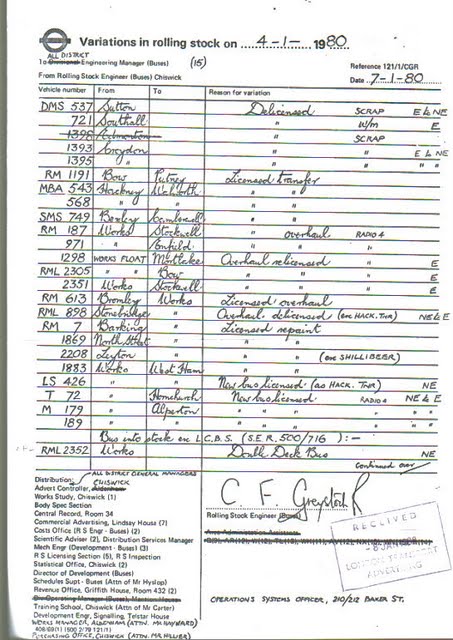 Variations in rolling stock on 4-1- 1980
ALL DISTRICT
To Engineering Manager (Buses) (15)
Reference 121/1/CGR
From Rolling Stock Engineer (Buses) Chiswick
Date 7-1-80
Vehicle number From To Reason for variation
DMS 537 Sutton Delicensed SCRAP E & NE
721 Southall " W/m E
1398 Edmonton " SCRAP
1393 Croydon " " E & NE
1395 " " " " "
RM 1191 Bow Putney Licensed transfer
MBA 543 Hackney Walworth " "
568 " " " "
SMS 749 Bexley Camberwell " "
RM 187 Works Stockwell " overhaul RADIO 4
971 " Enfield " "
1298 WORKS FLOAT Mortlake Overhaul relicensed E
RML 2305 " " Bow " " E
2351 Works Stockwell " " E
RM 613 Bromley Works Licensed overhaul
RML 898 Stonebridge " Overhaul delicensed (enc HACK. TNR) NE & E
RM 7 Barking " Licensed repaint
1869 North Street " " "
2208 Leyton " " " (enc SHILLIBEER)
1883 Works West Ham " "
LS 426 " " New bus licensed (ao HACK. TNR) NE
T 72 " Hornchurch New bus licensed RADIO 4 NE & E
M 179 " Alperton " " " " "
189 " " " " " "
Bus into stock ex L.C.B.S. (S.E.R. 500/716) :-
RML 2352 Works Double Deck Bus NE
continued over
Distribution: ALL DISTRICT GENERAL MANAGERS
CHISWICK
Advert Controller,
Works Study, Chiswick (1)
Body Spec Section
Central Record, Room 34
Commercial Advertising, Lindsay House (7)
Costs Office (R S Engr - Buses) (2)
Scientific Adviser (2), Distribution Services Manager
Mech Engr (Development - Buses) (3)
R S Licensing Section (5), R S Inspection
Statistical Office, Chiswick (2)
Director of Development (Buses)
Schedules Supt - Buses (Attn of Mr Hyslop)
Revenue Office, Griffith House, Room 432 (2)
Training School, Chiswick (Attn of Mr Carter)
Development Engr, Signalling, Telstar House
WORKS MANAGER, ALDENHAM (ATTN. MR HAYWARD)
PURCHASING OFFICE, CHISWICK (ATTN. MR HILLIER)
C. F. Greystock
Rolling Stock Engineer (Buses)
RECEIVED
8 JAN
LONDON TRANSPORT
ADVERTISING
OPERATIONS SYSTEMS OFFICER, 210/212 BAKER ST.